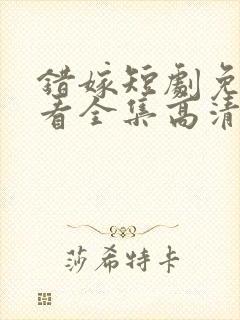 错嫁短劇免
看全集高清
莎希特卡